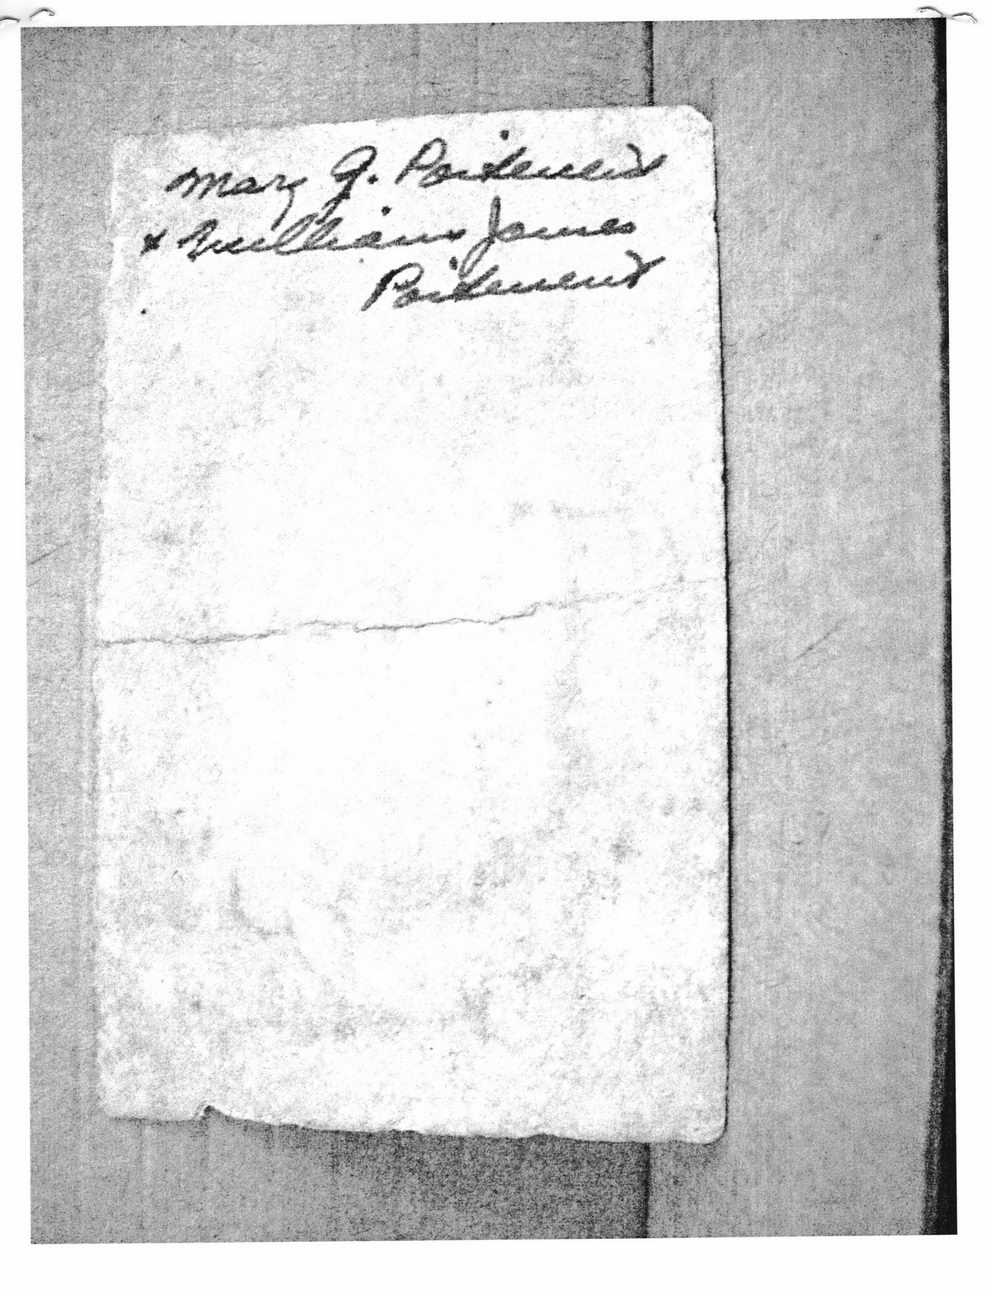 Mary G. Poitevent
& William James
Poitevent